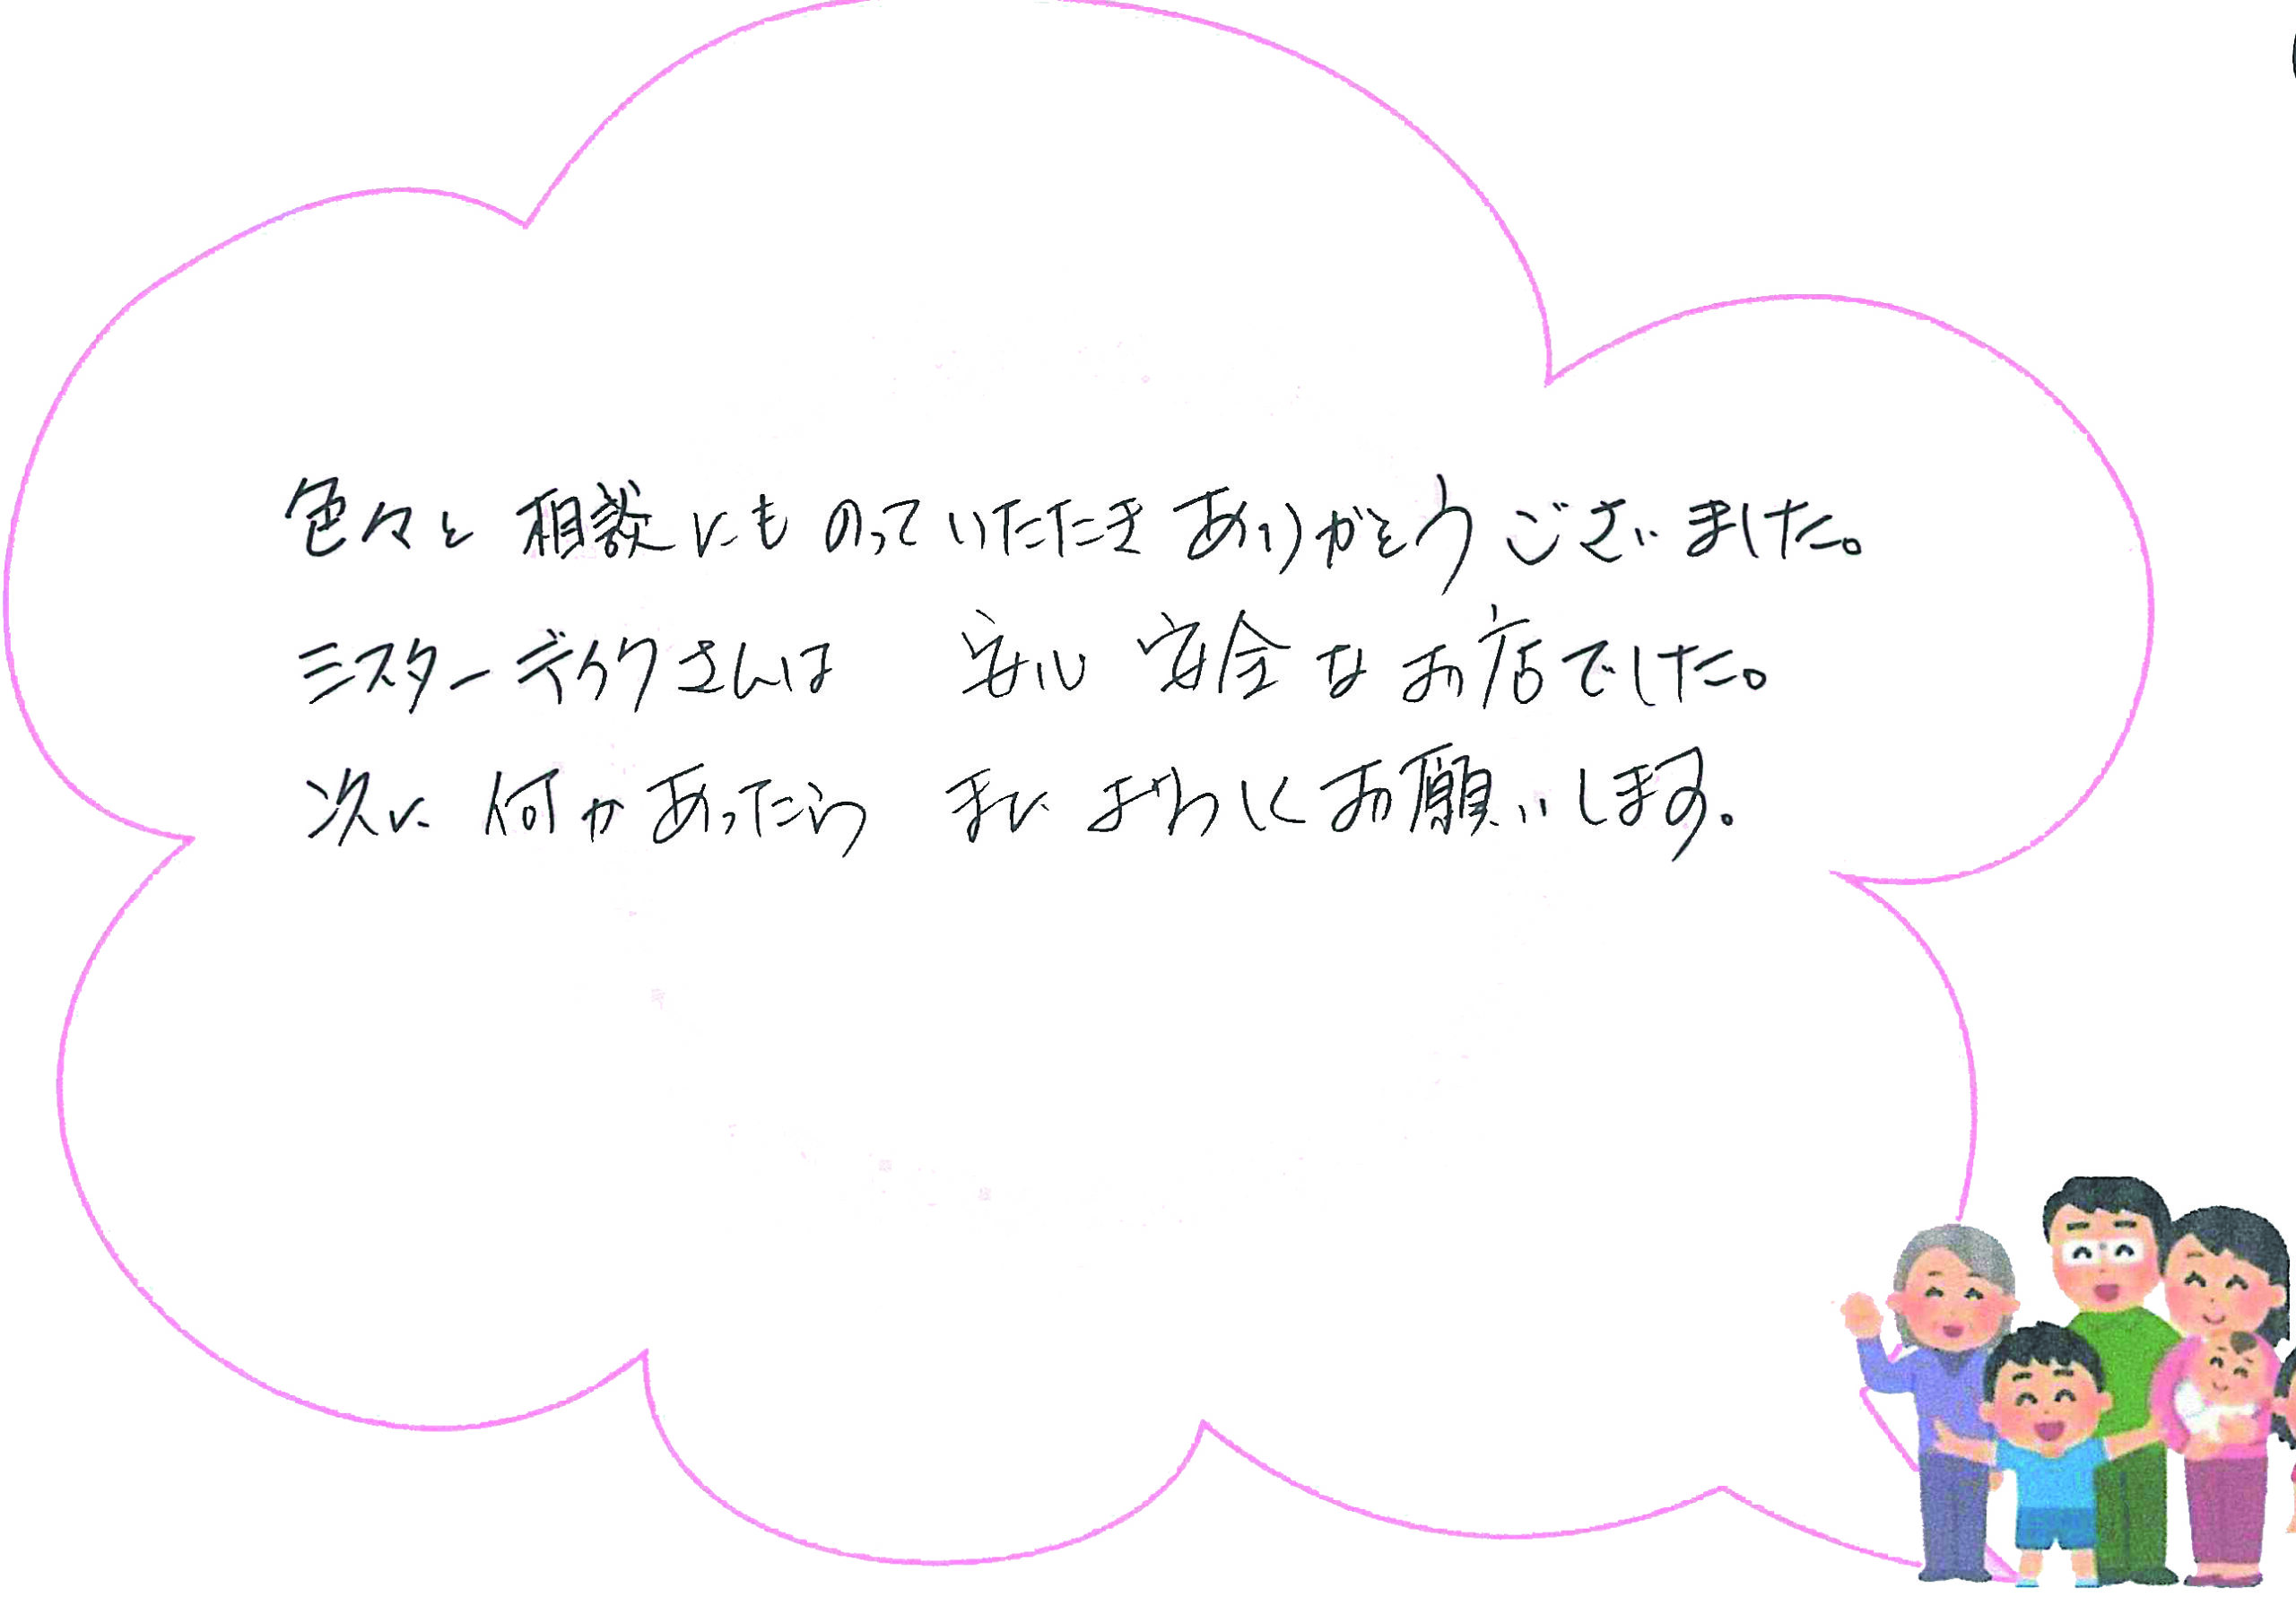 色々と相談にものっていただきありがとうございました。
ミスターデイクさんは 安心安全なお店でした。
次に何かあったら またよろしくお願いします。